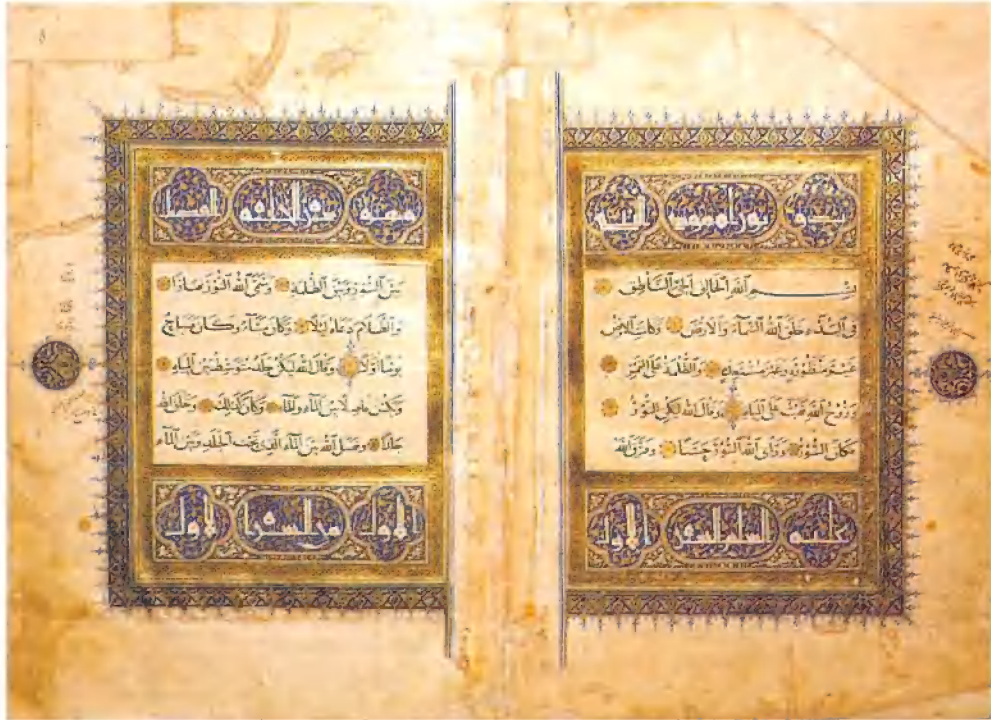 توراه موسى
بسم الله الخالق الحي الناطق
في البدء خلق الله السماء والارض وكانت الارض
غير منظورة وغير مستعدة والظلمة على الغمر
وروح الله تهب على المياه وقال الله ليكن النور
فكان النور ورأى الله النور حسنا وفرق الله
عليه السلام السفر الاول
سفر الخليقه الفصل
بين النور وبين الظلمة وسمى الله النور نهارا
والظلام دعاه ليلا وكان مساء وكان صباح
يوما اولا وقال الله ليكن جلد متوسط بين المياه
وليكن فاصلا بين الماء والماء وكان كذلك وخلق الله
جلدا وفصل الله بين الماء الذي تحت الجلد وبين الماء
الاول من السفر الاول